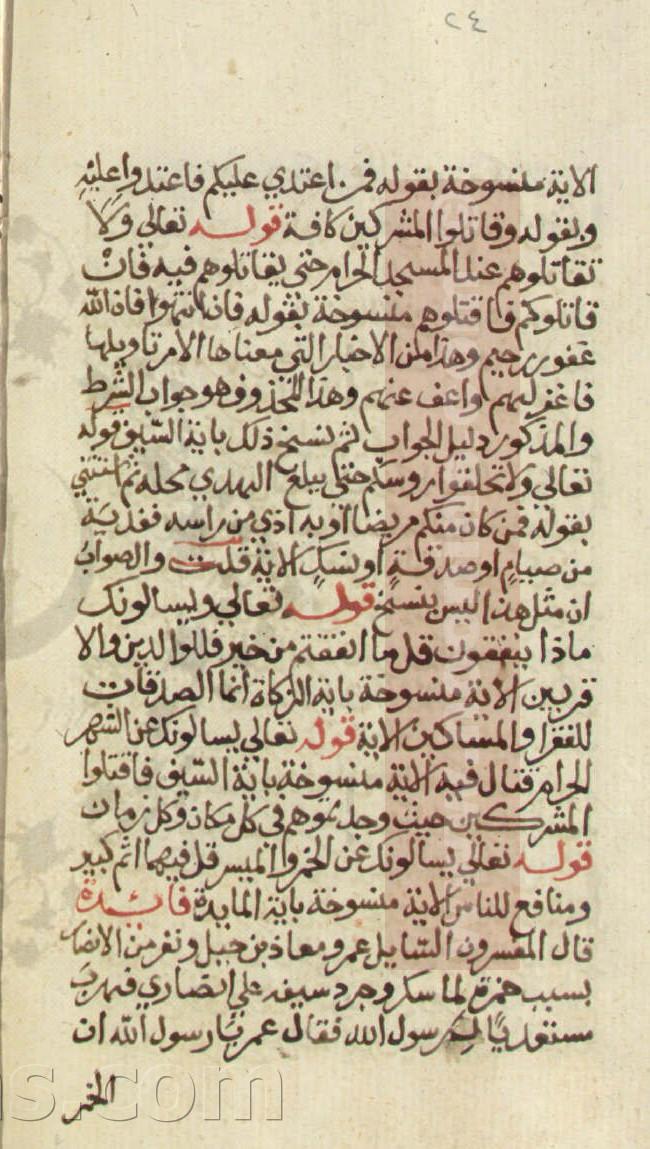 ٢٤
الاية منسوخة بقوله فمن اعتدي عليكم فاعتدوا عليه
وبقوله وقاتلوا المشركين كافة قوله تعالي ولا
تقاتلوهم عند المسجد الحرام حتى يقاتلوهم فيه فان
قاتلوكم فاقتلوهم منسوخة بقوله فان انتهوا فان الله
غفور رحيم وهذا من الاخبار التي معناها الامر تاويلها
فاغفر لهم واعف عنهم وهذا المحذوف هو جواب الشرط
والمذكور دليل الجواب ثم نسخ ذلك باية السيف قوله
تعالي ولا تحلقوا روسكم حتى يبلغ الهدي محله ثم استثني
بقوله فمن كان منكم مريضا او به اذي من راسه ففدية
من صيام او صدقة او نسك الاية قلت والصواب
ان مثل هذا ليس بنسخ قوله تعالي ويسالونك
ماذا ينفقون قل ما انفقتم من خير فللوالدين والا
قربين الاية منسوخة باية الزكاة انما الصدقات
للفقرا والمساكين الاية قوله تعالي يسالونك عن الشهر
الحرام قتال فيه الاية منسوخة باية السيف فاقتلوا
المشركين حيث وجدتموهم في كل مكان وكل زمان
قوله تعالي يسالونك عن الخمر والميسر قل فيهما اثم كبير
ومنافع للناس الاية منسوخة باية المايدة فائدة
قال المفسرون السايل عمرو معاذ بن جبل ونفر من الانصار
بسبب حمزة لما سكر وجرد سيفه علي انصاري فهرب
مستعديا رسول الله فقال عمر يا رسول الله ان
الخمر
s.com